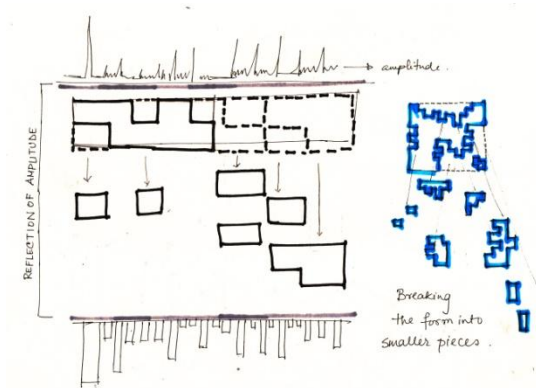 amplitude.
REFLECTION OF AMPLITUDE
Breaking
the form into
smaller pieces.